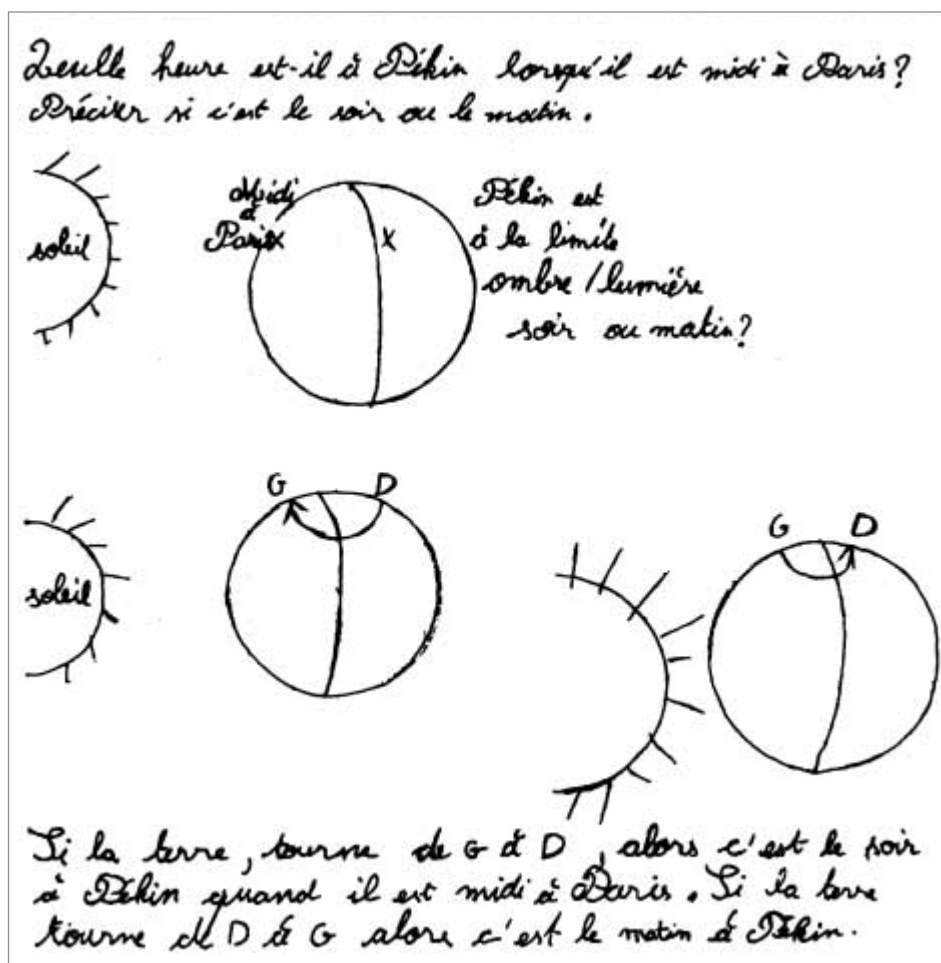 Quelle heure est-il à Pékin lorsqu'il est midi à Paris?
Préciser si c'est le soir ou le matin.
soleil
Midi
à
Paris x
X
Pékin est
à la limite
ombre/lumière
soir ou matin?
soleil
G
D
G
D
Si la terre, tourne de G à D, alors c'est le soir
à Pékin quand il est midi à Paris. Si la terre
tourne de D à G alors c'est le matin à Pékin.